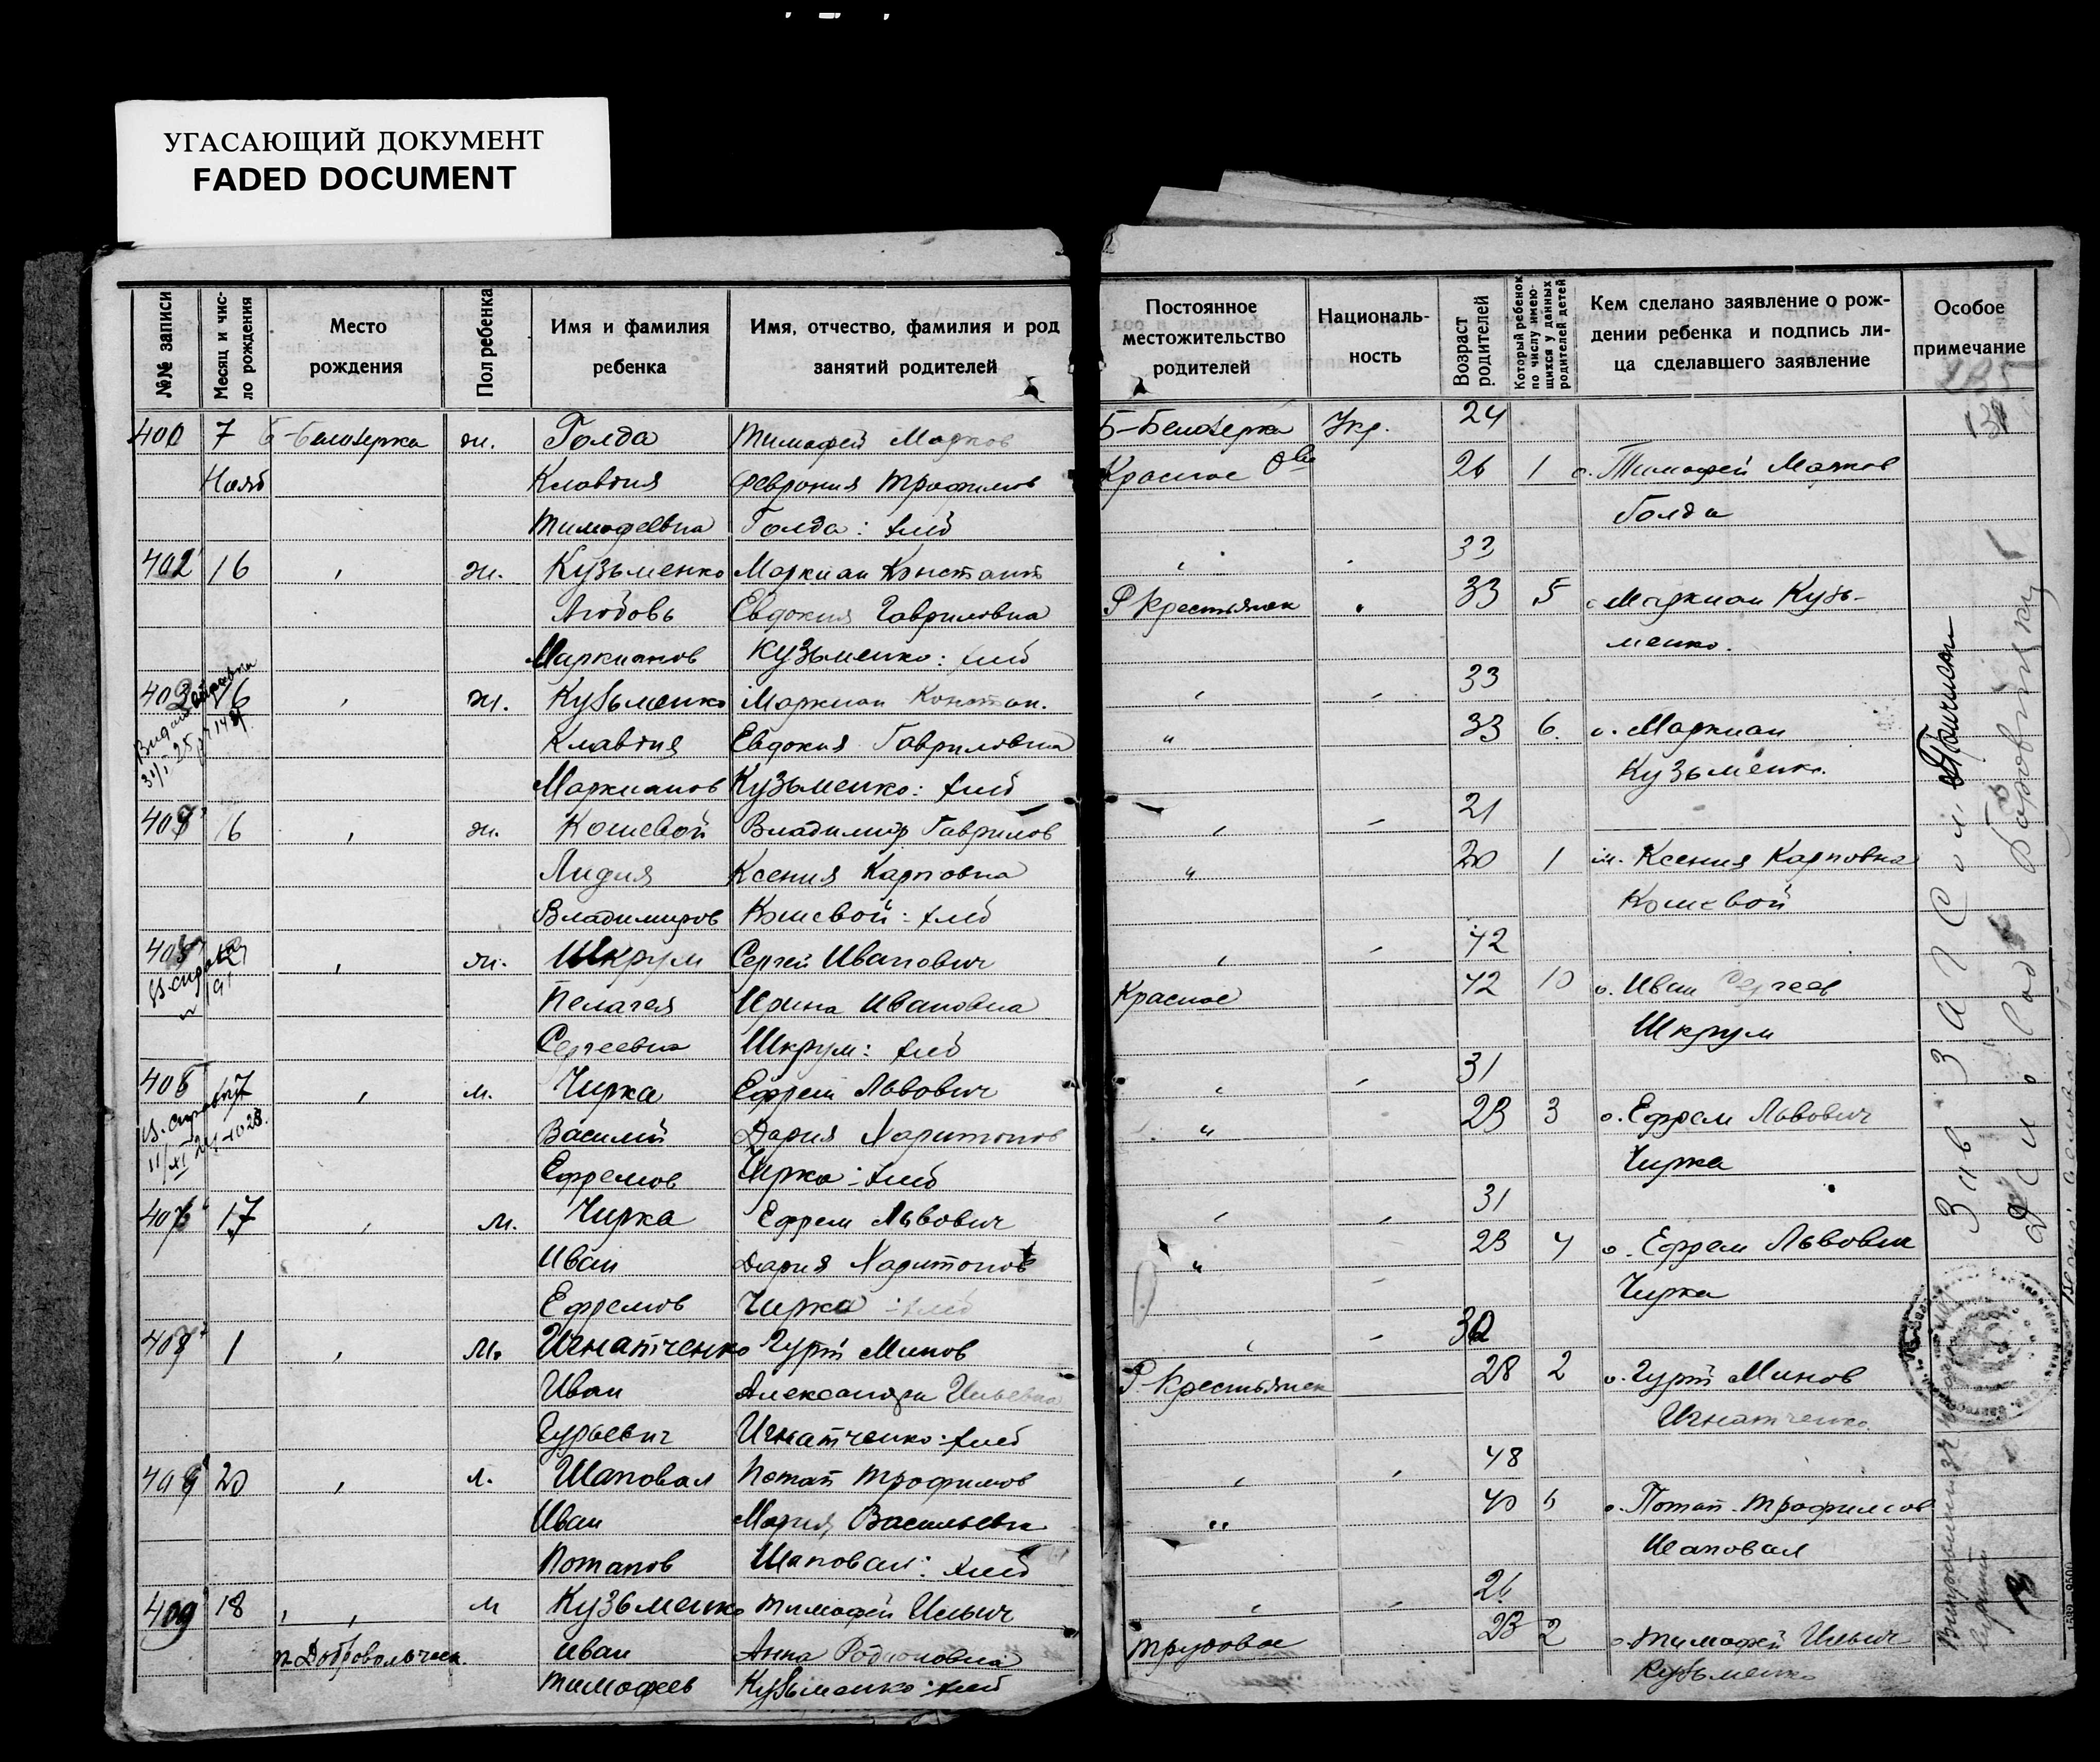 УГАСАЮЩИЙ ДОКУМЕНТ
FADED DOCUMENT
№№ записи
Месяц и чис-
ло рождения
Место
рождения
Пол ребенка
Имя и фамилия
ребенка
Имя, отчество, фамилия и род
занятий родителей
Постоянное
местожительство
родителей
Националь-
ность
Возраст
родителей
Который ребенок
по числу имею-
щихся у данных
родителей детей
Кем сделано заявление о рож-
дении ребенка и подпись ли-
ца сделавшего заявление
Особое
примечание
400 7 Б-Белозерка ж. Голда Тимофей Марков Б-Белозерка Укр. 24
Нояб Клавдия Феврония Трофимов Красное 26 1 о. Тимофей Марков
Тимофеевна Голда: хлеб Голда
402 16 ж. Кузьменко Маркиан Констант 33
Любовь Евдокия Гавриловна Р Крестьянск 33 5 о Маркиан Кузь-
Маркианов Кузьменко: хлеб менко.
403 16 ж. Кузьменко Маркиан Констан. 33
Клавдия Евдокия Гавриловна " 33 6. о. Маркиан
Маркианов Кузьменко: хлеб Кузьменко.
6 ж. Кошевой Владимир Гаврилов 21
Лидия Ксения Карповна " 20 1 м. Ксения Карповна
Владимиров Кошевой: хлеб Кошевой
405 ж. Шкрум Сергей Иванович 42
Пелагея Ирина Ивановна Красное 42 10 о. Иван Сергеев
Сергеевна Шкрум: хлеб Шкрум
406 м. Чирка Ефрем Львович 31
Василий Дария Харитонов " 23 3 о. Ефрем Львович
Ефремов Чирка: хлеб Чирка
17 м. Чирка Ефрем Львович 31
Иван Дария Харитонов " 23 4 о. Ефрем Львович
Ефремов Чирка: хлеб Чирка
1 м. Игнатченко Гурий Минов 30
Иван Александра Ильевна Р-Крестьянск 28 2 о. Гурий Минов
Гурьевич Игнатченко: хлеб Игнатченко
20 м. Шаповал Потап Трофимов 48
Иван Мария Васильевн " 40 о. Потап Трофимов
Потапов Шаповал: хлеб Шаповал
409 18 м Кузьменко Тимофей Ильич 26
п. Добровольческ. Иван Анна Родионовна Трудовое 23 2 о. Тимофей Ильич
Тимофеев Кузьменко: хлеб Кузьменко
Зав Загсом